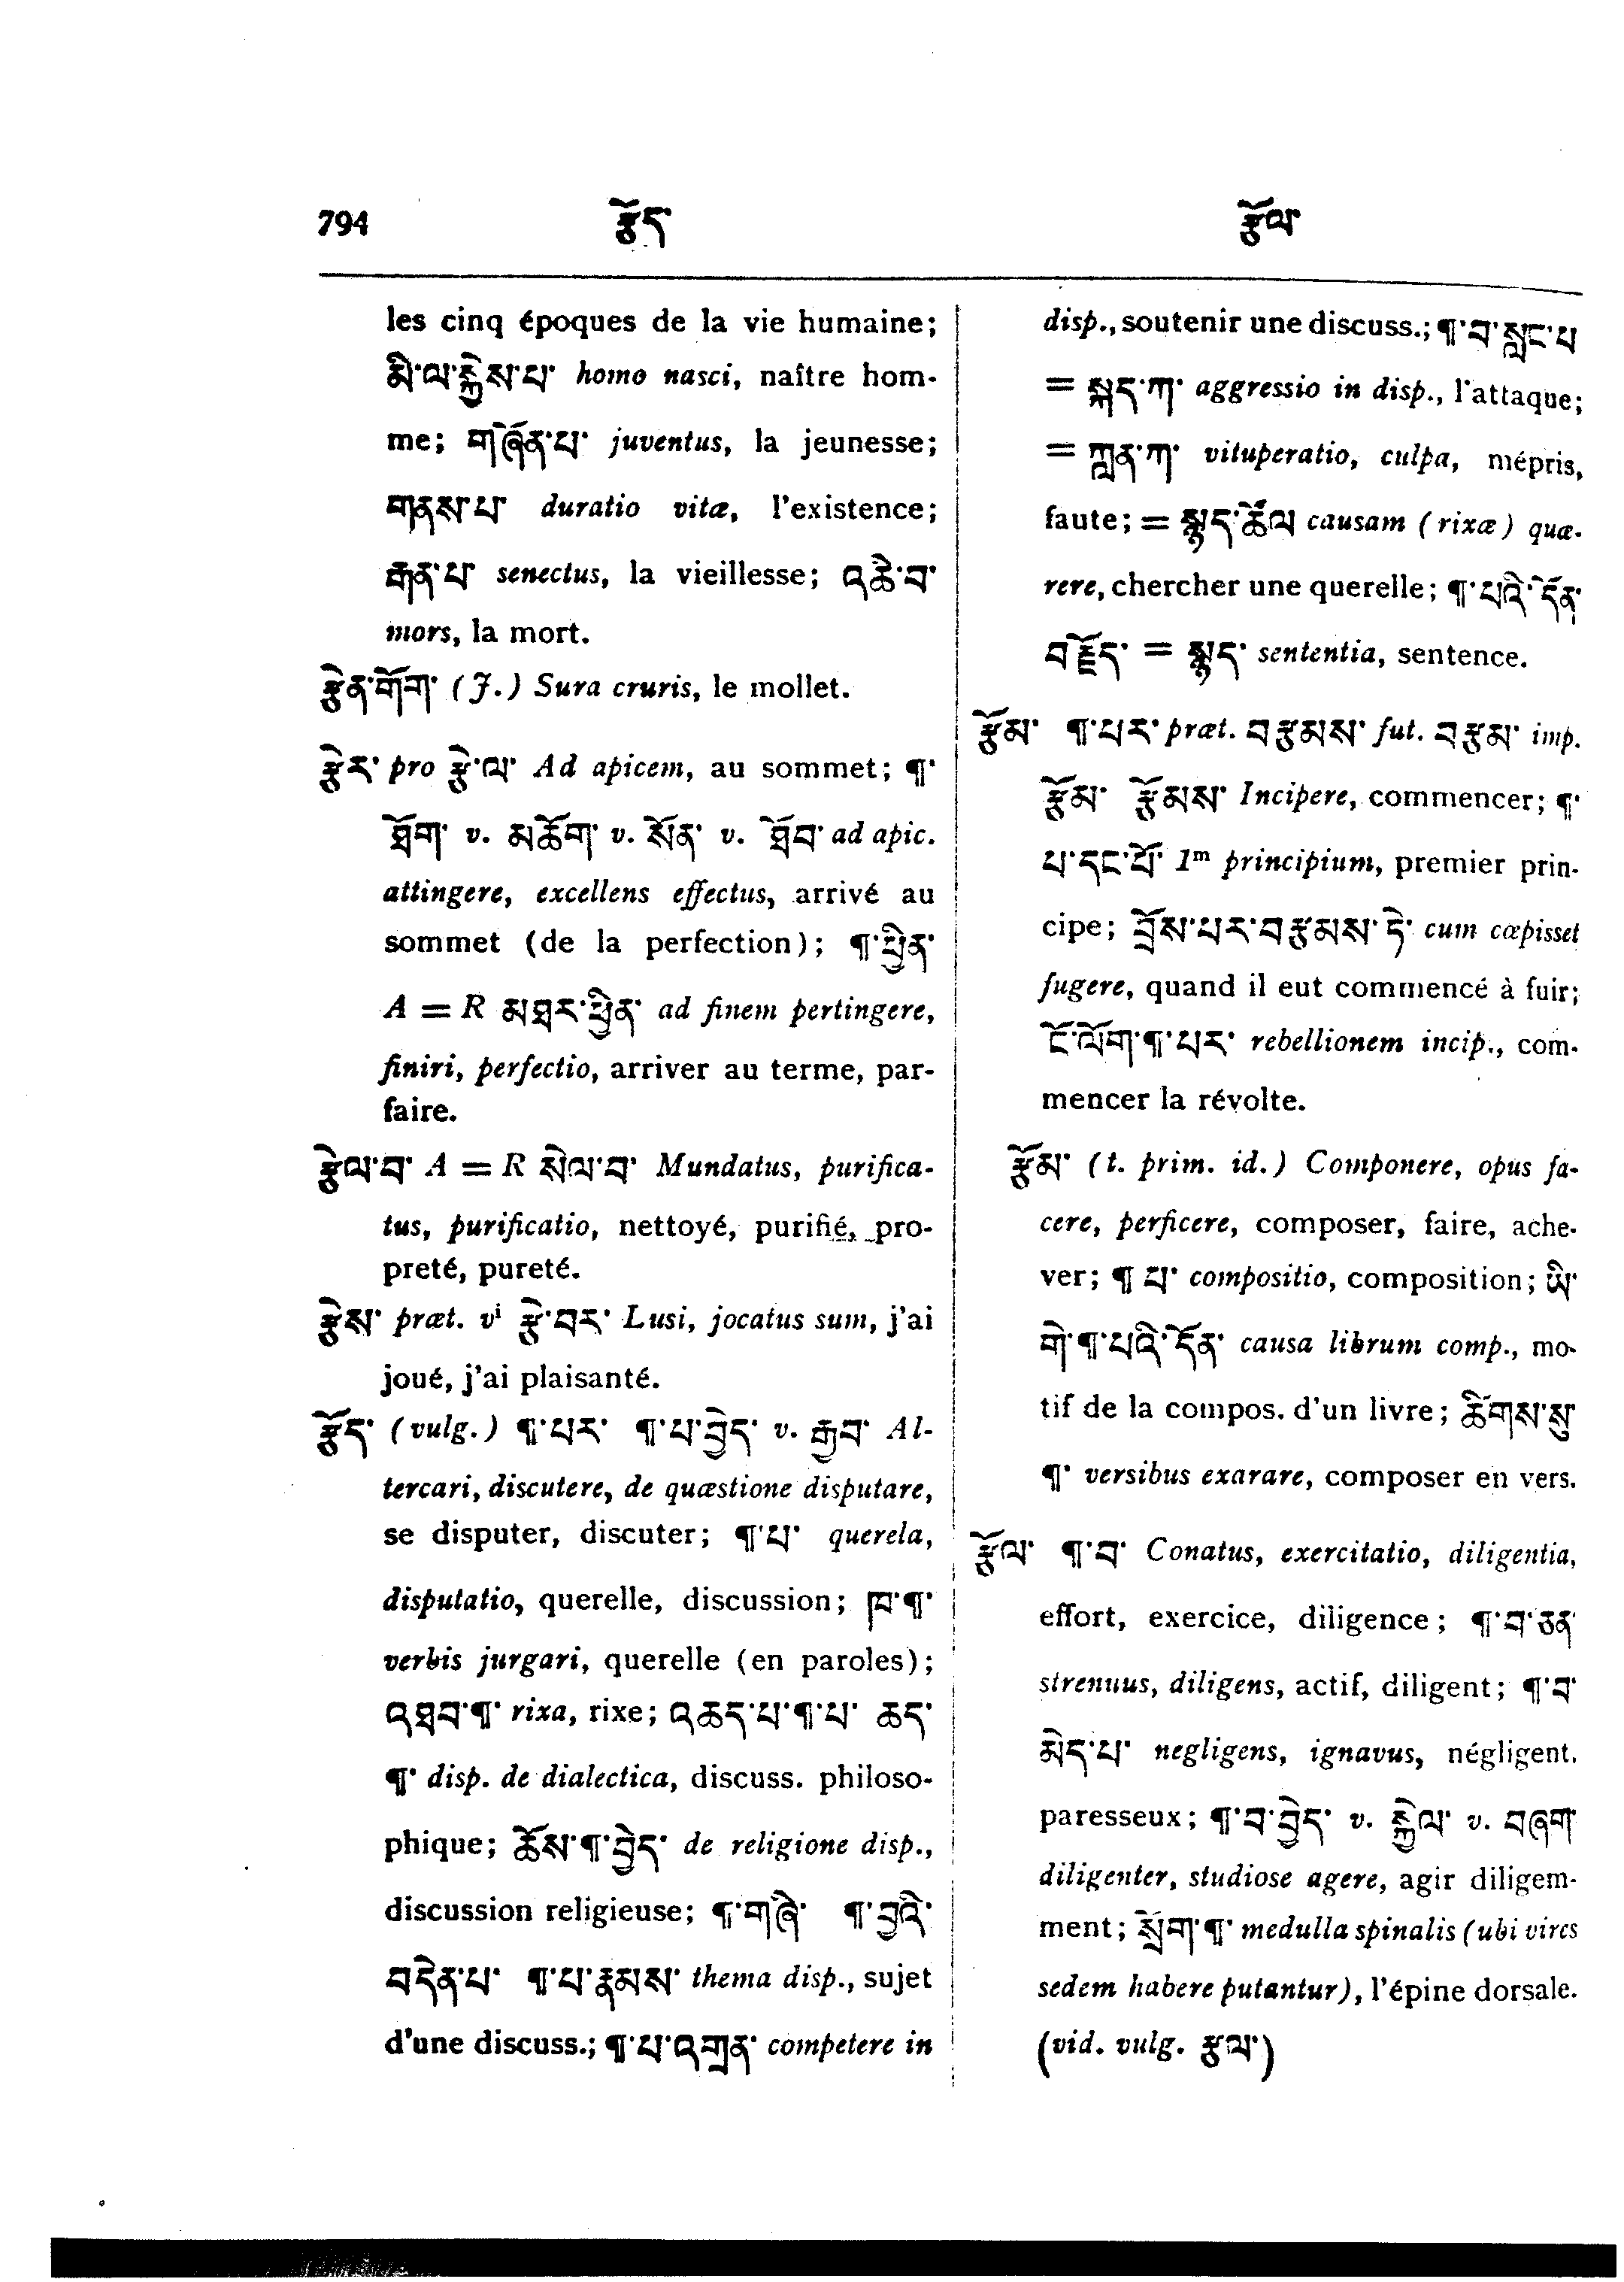 794 རྩོད རྩོལ་
les cinq époques de la vie humaine;
མི་ལ་སྐྱེས་པ་ homo nasci, naître hom-
me; གཞོན་པ་ juventus, la jeunesse;
གནས་པ་ duratio vitæ, l'existence;
རྒན་པ་ senectus, la vieillesse; འཆི་བ་
mors, la mort.
རྩེན་གོག་ (J.) Sura cruris, le mollet.
རྩེར་ pro རྩེ་ལ་ Ad apicem, au sommet; ¶་
ཐོག་ v. མཆོག་ v. སོན་ v. ཐོབ་ ad apic.
attingere, excellens effectus, arrivé au
sommet (de la perfection); ¶་ཕྱིན་
A = R མཐར་ཕྱིན་ ad finem pertingere,
finiri, perfectio, arriver au terme, par-
faire.
རྩེལ་བ་ A = R སེལ་བ་ Mundatus, purifica-
tus, purificatio, nettoyé, purifié, pro-
preté, pureté.
རྩེས་ præt. vi རྩེ་བར་ Lusi, jocatus sum, j'ai
joué, j'ai plaisanté.
རྩོད་ (vulg.) ¶་པར་ ¶་པ་བྱེད་ v. རྒྱབ་ Al-
tercari, discutere, de quæstione disputare,
se disputer, discuter; ¶་པ་ querela,
disputatio, querelle, discussion; ཁ་¶་
verbis jurgari, querelle (en paroles);
འཐབ་¶་ rixa, rixe; འཆད་པ་¶་པ་ ཆད་
¶་ disp. de dialectica, discuss. philoso-
phique; ཆོས་¶་བྱེད་ de religione disp.,
discussion religieuse; ¶་གཞི་ ¶་བྱའི་
བདེན་པ་ ¶་པ་རྣམས་ thema disp., sujet
d'une discuss.; ¶་པ་འགྲན་ competere in
disp., soutenir une discuss.; ¶་བ་སླང་པ
= སྐད་ཀ་ aggressio in disp., l'attaque;
= ཀླན་ཀ་ vituperatio, culpa, mépris,
faute; = སྙད་ཚོལ causam (rixæ) quæ-
rere, chercher une querelle; ¶་པའི་དོན་
བརྗོད་ = སྙད་ sententia, sentence.
རྩོམ་ ¶་པར་ præt. བརྩམས་ fut. བརྩམ་ imp.
རྩོམ་ རྩོམས་ Incipere, commencer; ¶་
པ་དང་པོ་ 1m principium, premier prin-
cipe; བྲོས་པར་བརྩམས་ཏེ་ cum cœpisset
fugere, quand il eut commencé à fuir;
ངོ་ལོག་¶་པར་ rebellionem incip., com-
mencer la révolte.
རྩོམ་ (t. prim. id.) Componere, opus fa-
cere, perficere, composer, faire, ache-
ver; ¶ པ་ compositio, composition; ཡི་
གེ་¶་པའི་དོན་ causa librum comp., mo-
tif de la compos. d'un livre; ཚིགས་སུ་
¶་ versibus exarare, composer en vers.
རྩོལ་ ¶་བ་ Conatus, exercitatio, diligentia,
effort, exercice, diligence; ¶་བ་ཅན་
strenuus, diligens, actif, diligent; ¶་བ་
མེད་པ་ negligens, ignavus, négligent,
paresseux; ¶་བ་བྱེད་ v. སྐྱེལ་ v. བཞག་
diligenter, studiose agere, agir diligem-
ment; སྲོག་¶་ medulla spinalis (ubi vires
sedem habere putantur), l'épine dorsale.
(vid. vulg. རྩལ་)